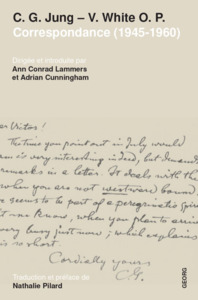 C. G. Jung – V. White O. P.
Correspondance (1945-1960)
Dirigée et introduite par
Ann Conrad Lammers
et Adrian Cunningham
The time you point out in July would
very interesting indeed, but
remarks in a letter. It deals with th
when you are not westward bound,
seems to be part of a
know, when you plan to
busy just now; which explains
is so short.
Cordially yours
C.G.
Traduction et préface de
Nathalie Pilard
GEORG